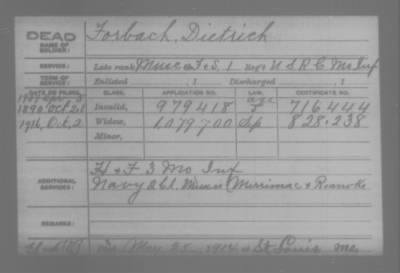 DEAD
NAME OF SOLDIER:
Forbach, Dietrich
SERVICE:
Late rank, Musc F & S, 1 Reg't U S R C Mo Inf
TERM OF SERVICE:
Enlisted , 1 Discharged , 1
DATE OF FILING. CLASS. APPLICATION NO. LAW. CERTIFICATE NO.
1890 Oct 21 Invalid, 979418 716444
1916, Oct, 2 Widow, 1079700 828.238
Minor,
ADDITIONAL SERVICES:
H & F 3 Mo Inf
Navy Merrimac & Roanoke
REMARKS:
May 25, 1914 St Louis Mo